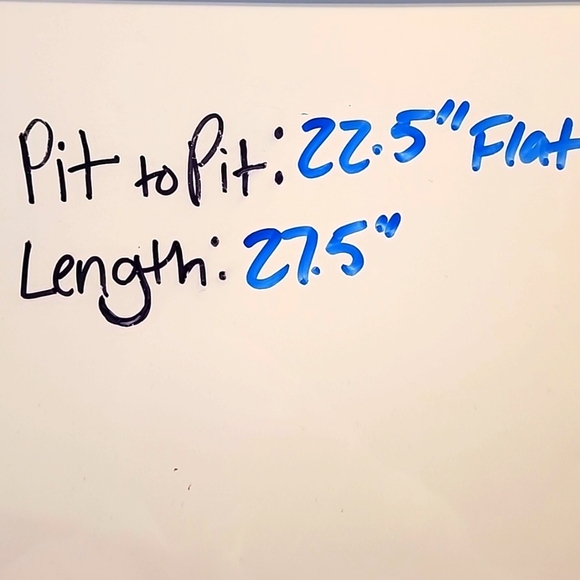 Pit to Pit: 22.5" Flat
Length: 27.5"